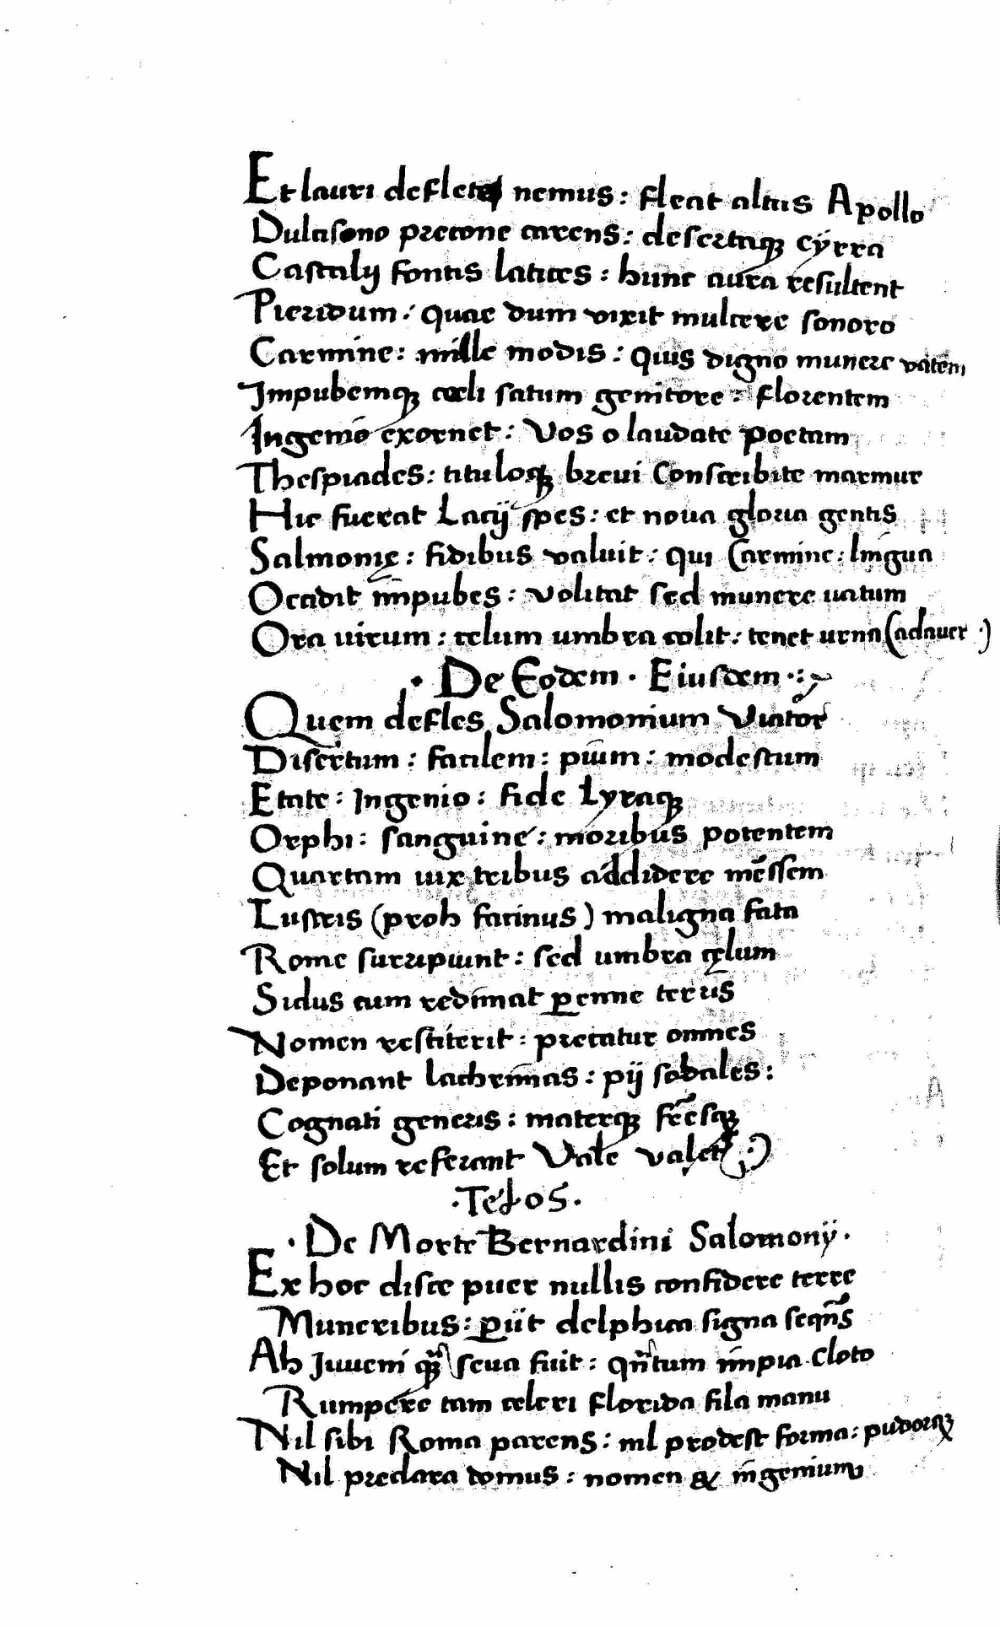 Et lauri defletę nemus: fleat altus Apollo
Dulcisono precone carens: desertaq; cÿrra
Castalij fontis latices: hunc aura resultent
Pieridum: quae dum vixit mulcere sonoro
Carmine: mille modis: quis digno munere vatem
Impubemq; coeli satum genitore: florentem
Ingenio exornet: Vos o laudate poetam
Thespiades: tituloq; brevi Conscribite marmur
Hic fuerat Lacij spes: et nova gloria gentis
Salmonię: fidibus valuit: qui Carmine: lingua
Occidit impubes: volitat sed munere vatum
Ora virum: celum umbra colit: tenet urna Cadauer ·)
· De Eodem · Eiusdem ·:~
Quem defles Salomonium Viator
Disertum: facilem: pium: modestum
Etate: Ingenio: fide Lyraq;
Orphi: sanguine: moribus potentem
Quartam vix tribus addidere messem
Lustris (proh facinus) maligna fata
Rome surripiunt: sed umbra cęlum
Sidus cum redimat perenne terris
Nomen restiterit: precatur omnes
Deponant lachrimas: pij sodales:
Cognati generis: materq; fr̃esq;
Et solum referant Vale valetę ·:)
·Telos·
· De Morte Bernardini Salomonÿ·
Ex hoc disce puer nullis confidere terre
Muneribus: periit delphica signa seqũs
Ah Juveni quã seva fuit: qñtum impia Cloto
Rumpere tam celeri florida fila manu
Nil sibi Roma parens: nil prodest forma: pudorq;
Nil preclara domus: nomen & ingenium